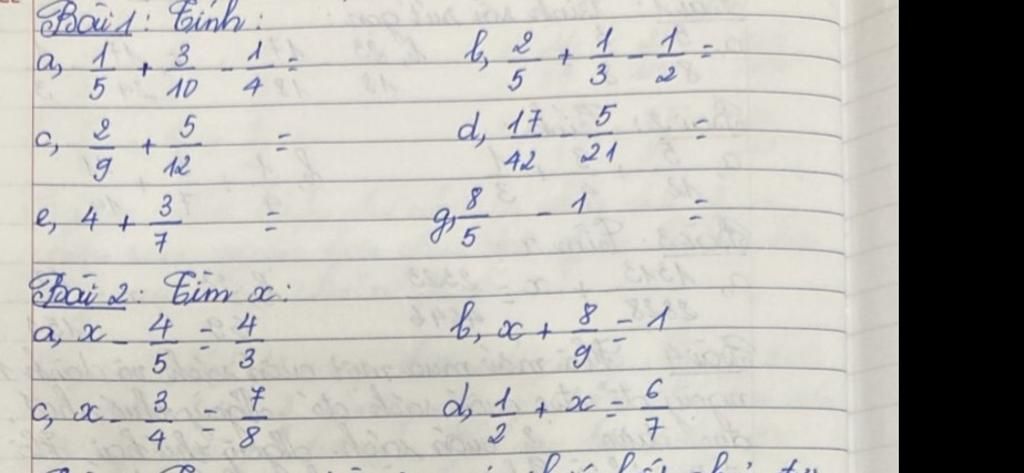 Bài 1: Tính:
a, 1/5 + 3/10 - 1/4 = b, 2/5 + 1/3 - 1/2 =
c, 2/9 + 5/12 = d, 17/42 - 5/21 =
e, 4 + 3/7 = g, 8/5 - 1 =
Bài 2: Tìm x:
a, x - 4/5 = 4/3 b, x + 8/9 = 1
c, x - 3/4 = 7/8 d, 1/2 + x = 6/7